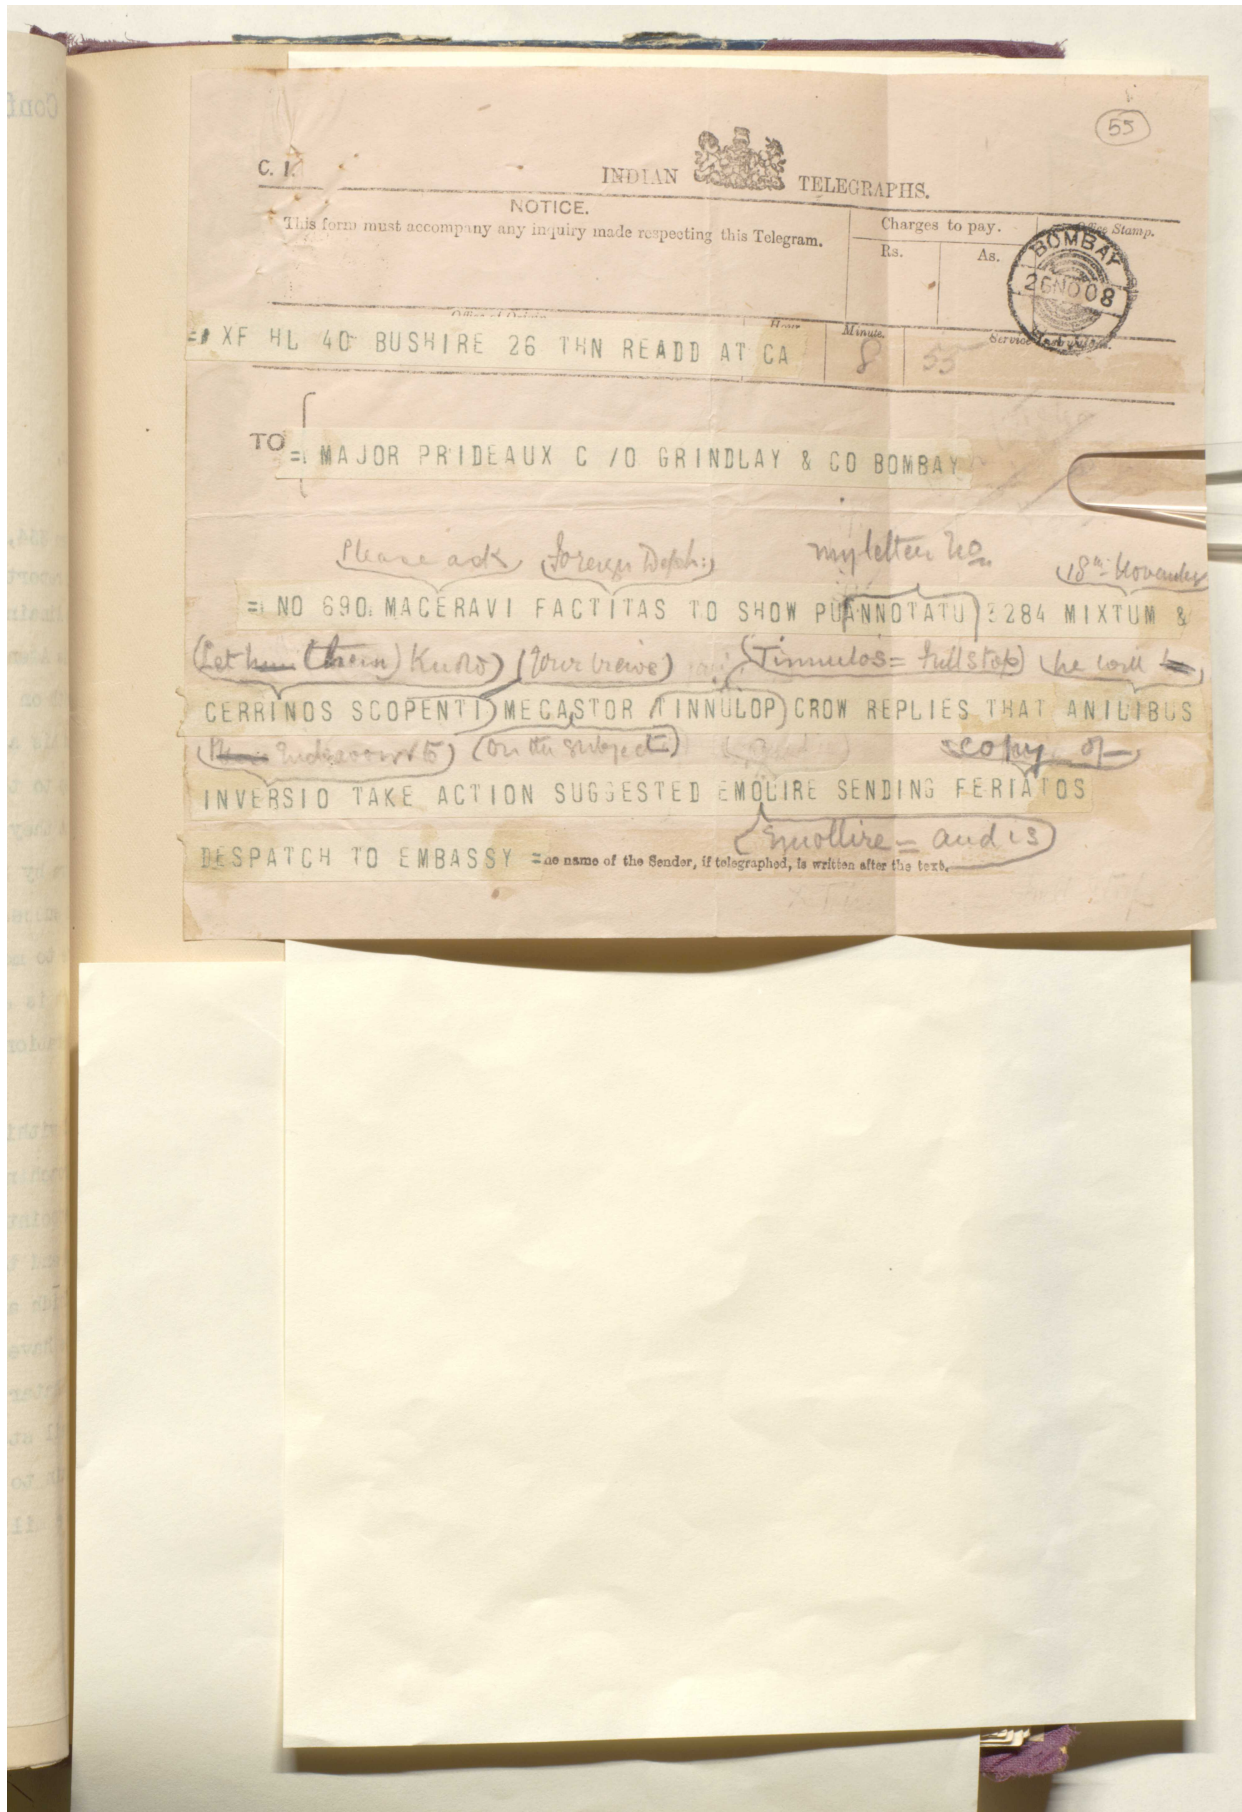 55
C. I.
INDIAN TELEGRAPHS.
NOTICE.
This form must accompany any inquiry made respecting this Telegram.
Charges to pay.
Office Stamp.
Rs. As.
BOMBAY
26 NO 08
Office of Origin
Hour
Minute.
Service Instructions.
= XF HL 40 BUSHIRE 26 THN READD AT CA 8 55
TO = MAJOR PRIDEAUX C /O GRINDLAY & CO BOMBAY
Please ask Foreign Dept: my letter No 18th November
= NO 690 MACERAVI FACTITAS TO SHOW PUANNOTATU 3284 MIXTUM &
(Let him (them) know) (your views) (Tinnulos = full stop) he will
CERRINOS SCOPENTI MECASTOR TINNULOP CROW REPLIES THAT ANILIBUS
Endeavour to) (on the subject) copy of
INVERSIO TAKE ACTION SUGGESTED EMOLIRE SENDING FERIATOS
Emollire = and is
DESPATCH TO EMBASSY =
he name of the Sender, if telegraphed, is written after the text.